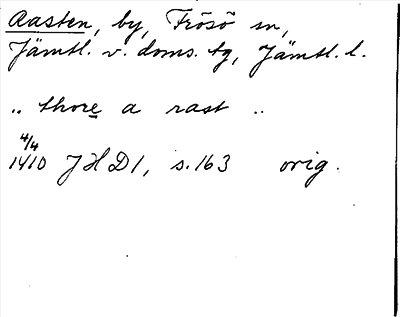 Aasten, by, Frösö sn,
Jämtl. v. doms. tg, Jämtl. l.
.. thore a rast ..
4/4
1410 JHD1, s. 163 orig.